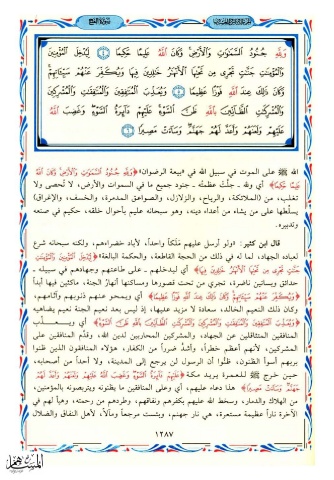 سورة الفتح
وَلِلَّهِ جُنُودُ السَّمَوَتِ وَالْأَرْضِ وَكَانَ اللَّهُ عَلِيمًا حَكِيمًا ٤ لِيُدْخِلَ الْمُؤْمِنِينَ
وَالْمُؤْمِنَتِ جَنَّتٍ تَجْرِي مِن تَحْتِهَا الْأَنْهَرُ خَلِدِينَ فِيهَا وَيُكَفِّرَ عَنْهُمْ سَيِّئَاتِهِمْ
وَكَانَ ذَلِكَ عِندَ اللَّهِ فَوْزًا عَظِيمًا ٥ وَيُعَذِّبَ الْمُنَفِقِينَ وَالْمُنَفِقَتِ وَالْمُشْرِكِينَ
وَالْمُشْرِكَتِ الظَّانِّينَ بِاللَّهِ ظَنَّ السَّوْءِ عَلَيْهِمْ دَائِرَةُ السَّوْءِ وَغَضِبَ اللَّهُ
عَلَيْهِمْ وَلَعَنَهُمْ وَأَعَدَّ لَهُمْ جَهَنَّمَ وَسَاءَتْ مَصِيرًا ٦
الله ﷺ على الموت في سبيل الله في «بيعة الرضوان» ﴿وَلِلَّهِ جُنُودُ السَّمَوَتِ وَالْأَرْضِ وَكَانَ اللَّهُ
عَلِيمًا حَكِيمًا﴾ أي ولله ـ جلَّت عظمتُه ـ جنود جميع ما في السموات والأرض، لا تُحصى ولا
تُغلب، من (الملائكة، والرياح، والزلازل، والصواعق المدمرة، والخسف، والإغراق)
يسلِّطها على من يشاء من أعداء دينه، وهو سبحانه عليم بأحوال خلقه، حكيم في صنعه
وتدبيره.
قال ابن كثير: «ولو أرسل عليهم مَلَكاً واحداً، لأباد خضراءهم، ولكنه سبحانه شرع
لعباده الجهاد، لما له في ذلك من الحجة القاطعة، والحكمة البالغة» ﴿لِيُدْخِلَ الْمُؤْمِنِينَ وَالْمُؤْمِنَتِ
جَنَّتٍ تَجْرِي مِن تَحْتِهَا الْأَنْهَرُ خَلِدِينَ فِيهَا﴾ أي ليدخلهم ـ على طاعتهم وجهادهم في سبيله ـ
حدائق وبساتين ناضرة، تجري من تحت قصورها ومساكنها أنهارُ الجنة، ماكثين فيها أبداً
﴿وَيُكَفِّرَ عَنْهُمْ سَيِّئَاتِهِمْ وَكَانَ ذَلِكَ عِندَ اللَّهِ فَوْزًا عَظِيمًا﴾ أي ويمحو عنهم ذنوبهم وآثامهم،
وكان ذلك النعيم الخالد، سعادة لا مزيد عليها، إذ ليس بعد نعيم الجنة نعيم يضاهيه
﴿وَيُعَذِّبَ الْمُنَفِقِينَ وَالْمُنَفِقَتِ وَالْمُشْرِكِينَ وَالْمُشْرِكَتِ الظَّانِّينَ بِاللَّهِ ظَنَّ السَّوْءِ﴾ أي ويعذب
الله المنافقين والمنافقات، والمشركين المحاربين لدين الله، وقدَّم المنافقين على
المشركين، لأنهم أعظم خطراً، وأشدُّ ضرراً من الكفار، هؤلاء المنافقون الذين ظنوا
بربهم أسوأ الظنون، ظنُّوا أن الرسول لن يرجع إلى المدينة، ولا أحداً من أصحابه،
حين خرج ﷺ للعمرة يريد مكة ﴿عَلَيْهِمْ دَائِرَةُ السَّوْءِ وَغَضِبَ اللَّهُ عَلَيْهِمْ وَلَعَنَهُمْ وَأَعَدَّ لَهُمْ
جَهَنَّمَ وَسَاءَتْ مَصِيرًا﴾ هذا دعاء عليهم، أي وعلى المنافقين ما يظنونه ويتربصونه بالمؤمنين،
من الهلاك والدمار، وسخط الله عليهم بكفرهم ونفاقهم، وطردهم من رحمته، وهيأ لهم في
الآخرة ناراً عظيمة مستعرة، هي نار جهنم، وبئست مرجعاً ومآلاً، لأهل النفاق والضلال
١٢٨٧